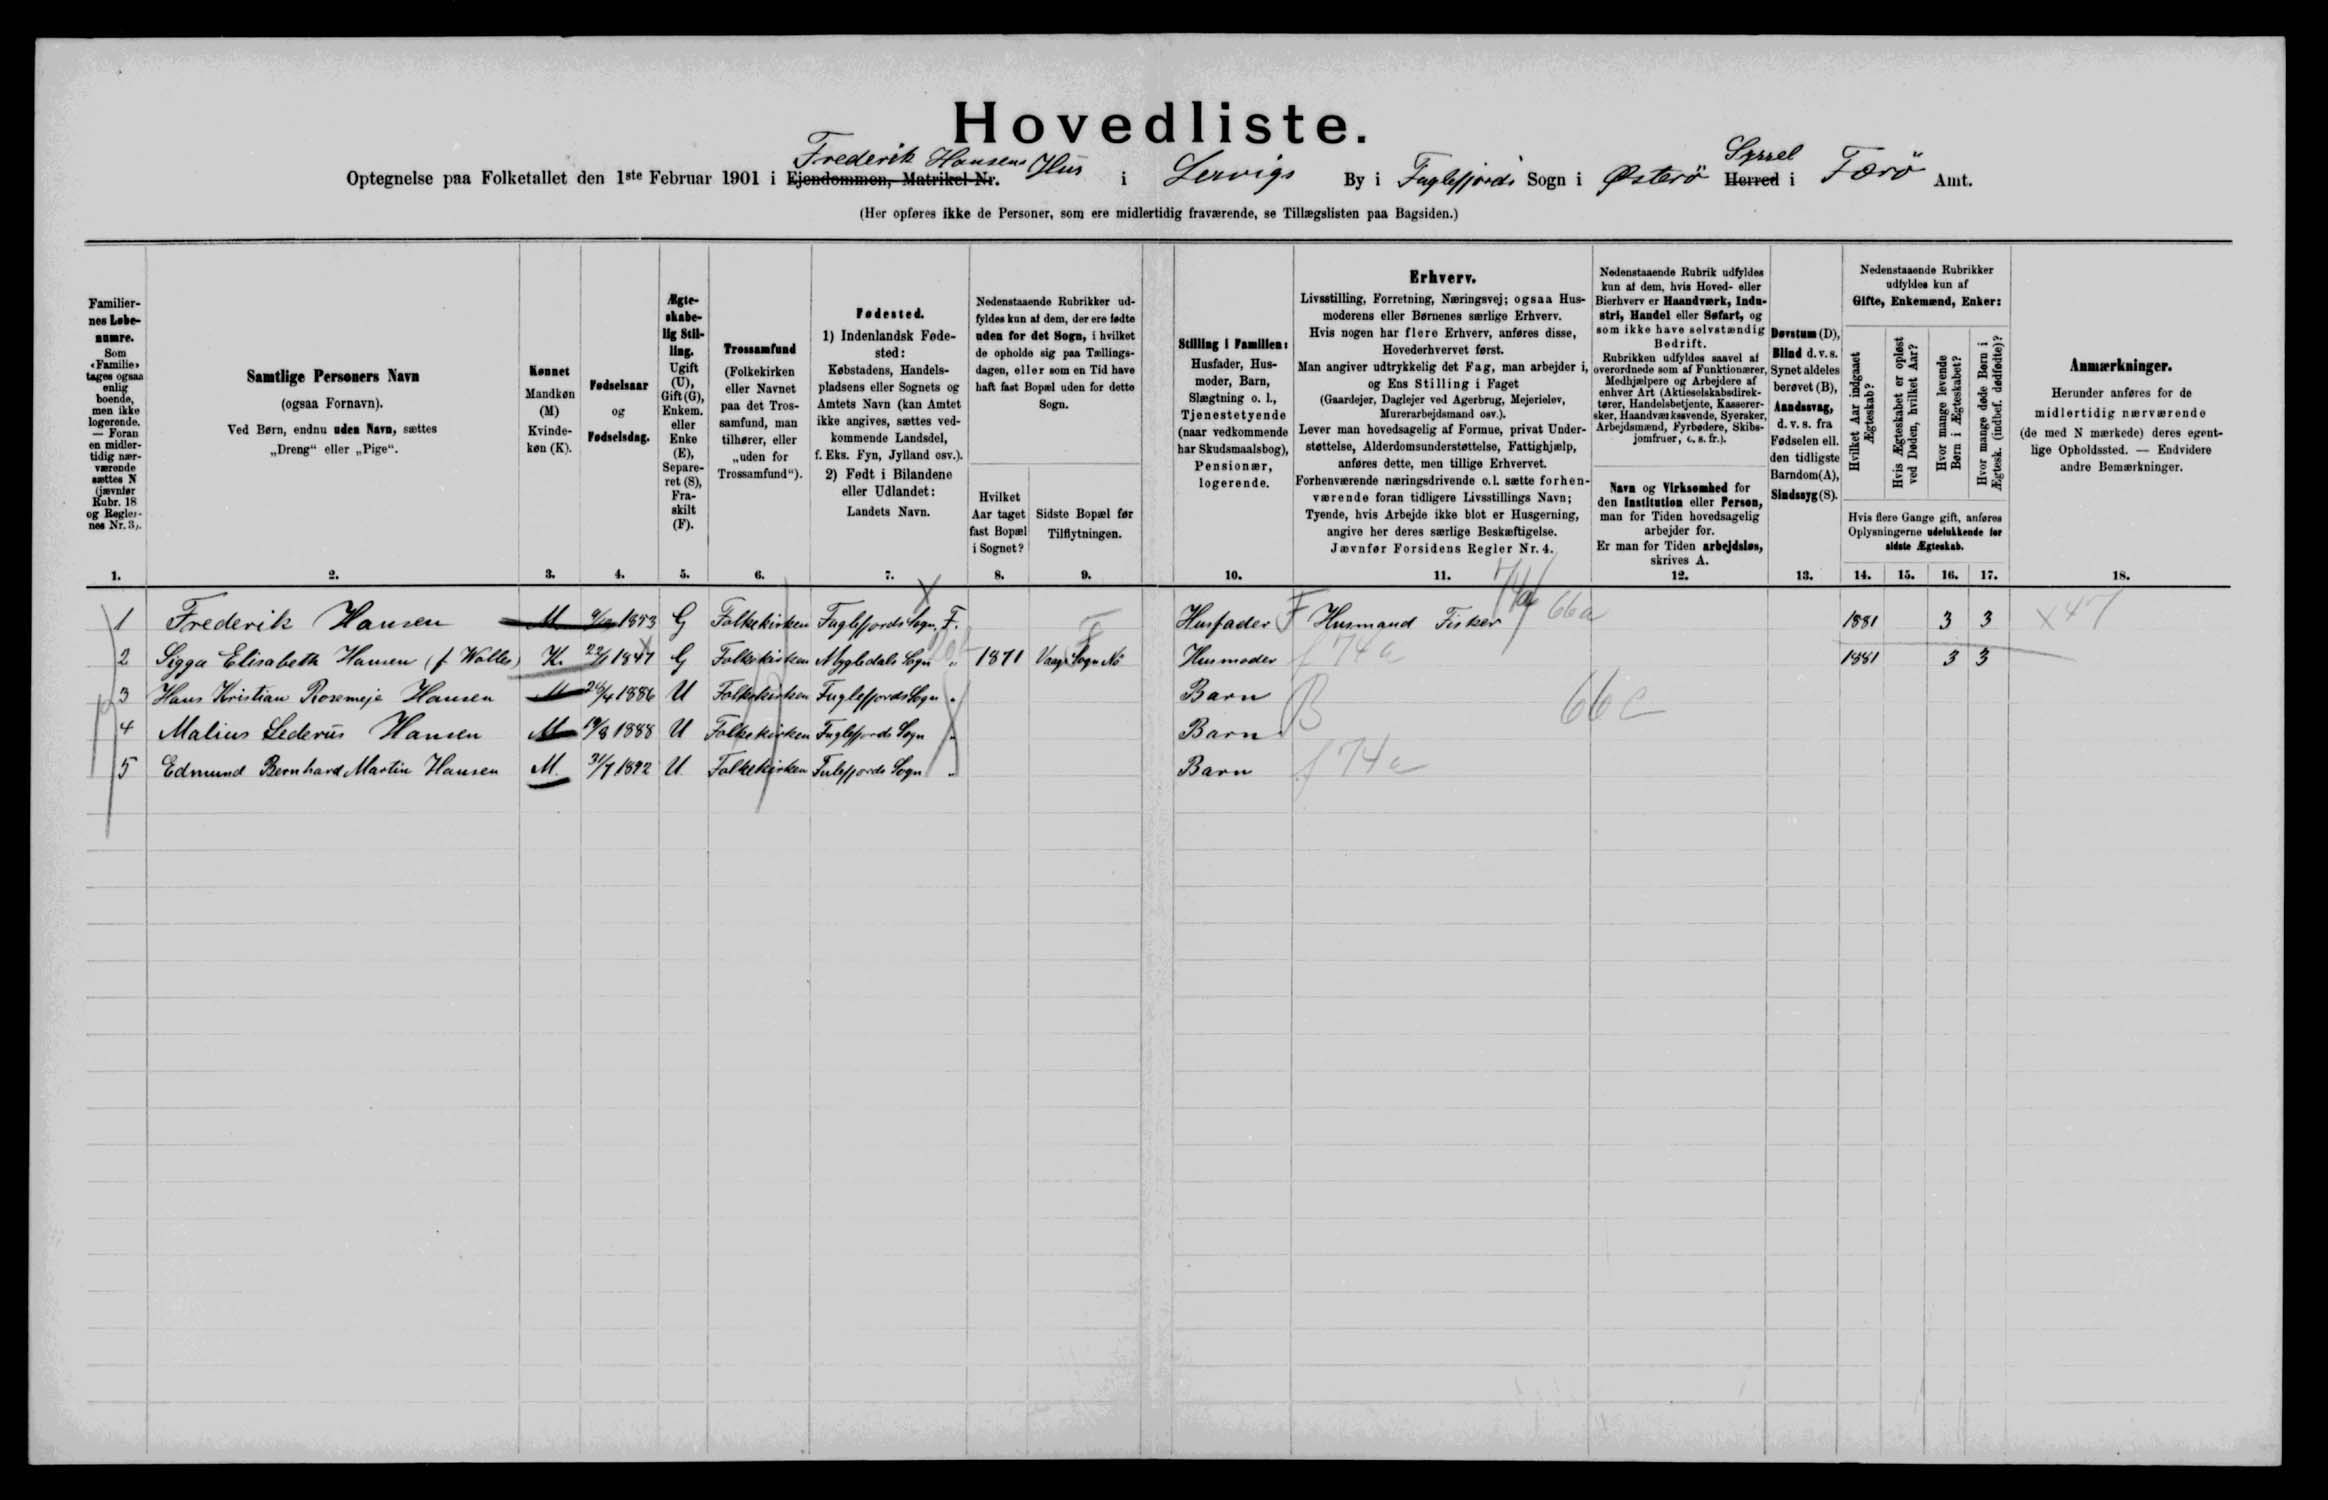 Hovedliste.
Optegnelse paa Folketallet den 1ste Februar 1901 i Ejendommen, Matrikel-Nr. Frederik Hansens Hus i Lervigs By i Fuglefjords Sogn i Østerö Herred Syssel i Færö Amt.
(Her opføres ikke de Personer, som ere midlertidig fraværende, se Tillægslisten paa Bagsiden.)
Familiernes Løbenumre. Som «Familie» tages ogsaa enlig boende, men ikke logerende. — Foran en midlertidig nærværende sættes N (jævnfør Rubr. 18 og Reglernes Nr. 3).
Samtlige Personers Navn (ogsaa Fornavn). Ved Børn, endnu uden Navn, sættes „Dreng“ eller „Pige“.
Kønnet Mandkøn (M) Kvindekøn (K).
Fødselsaar og Fødselsdag.
Ægteskabelig Stilling. Ugift (U), Gift (G), Enkem. eller Enke (E), Separeret (S), Fraskilt (F).
Trossamfund (Folkekirken eller Navnet paa det Trossamfund, man tilhører, eller „uden for Trossamfund“).
Fødested. 1) Indenlandsk Fødested: Købstadens, Handelspladsens eller Sognets og Amtets Navn (kan Amtet ikke angives, sættes vedkommende Landsdel, f. Eks. Fyn, Jylland osv.). 2) Født i Bilandene eller Udlandet: Landets Navn.
Nedenstaaende Rubrikker udfyldes kun af dem, der ere fødte uden for det Sogn, i hvilket de opholde sig paa Tællingsdagen, eller som en Tid have haft fast Bopæl uden for dette Sogn.
Hvilket Aar taget fast Bopæl i Sognet?
Sidste Bopæl før Tilflytningen.
Stilling i Familien: Husfader, Husmoder, Barn, Slægtning o. l., Tjenestetyende (naar vedkommende har Skudsmaalsbog), Pensionær, logerende.
Erhverv.
Livsstilling, Forretning, Næringsvej; ogsaa Husmoderens eller Børnenes særlige Erhverv.
Hvis nogen har flere Erhverv, anføres disse, Hovederhvervet først.
Man angiver udtrykkelig det Fag, man arbejder i, og Ens Stilling i Faget (Gaardejer, Daglejer ved Agerbrug, Mejerielev, Murerarbejdsmand osv.).
Lever man hovedsagelig af Formue, privat Understøttelse, Alderdomsunderstøttelse, Fattighjælp, anføres dette, men tillige Erhvervet.
Forhenværende næringsdrivende o. l. sætte forhenværende foran tidligere Livsstillings Navn; Tyende, hvis Arbejde ikke blot er Husgerning, angive her deres særlige Beskæftigelse.
Jævnfør Forsidens Regler Nr. 4.
Nedenstaaende Rubrik udfyldes kun af dem, hvis Hoved- eller Bierhverv er Haandværk, Industri, Handel eller Søfart, og som ikke have selvstændig Bedrift.
Rubrikken udfyldes saavel af overordnede som af Funktionærer, Medhjælpere og Arbejdere af enhver Art (Aktieselskabsdirektører, Handelsbetjente, Kasserersker, Haandværkssvende, Syersker, Arbejdsmænd, Fyrbødere, Skibsjomfruer, o. s. fr.).
Navn og Virksomhed for den Institution eller Person, man for Tiden hovedsagelig arbejder for.
Er man for Tiden arbejdsløs, skrives A.
Døvstum (D), Blind d. v. s. Synet aldeles berøvet (B), Aandssvag, d. v. s. fra Fødselen ell. den tidligste Barndom (A), Sindssyg (S).
Nedenstaaende Rubrikker udfyldes kun af Gifte, Enkemænd, Enker:
Hvilket Aar indgaaet Ægteskab?
Hvis Ægteskabet er opløst ved Døden, hvilket Aar?
Hvor mange levende Børn i Ægteskabet?
Hvor mange døde Børn i Ægtesk. (indbef. dødfødte)?
Hvis flere Gange gift, anføres Oplysningerne udelukkende for sidste Ægteskab.
Anmærkninger. Herunder anføres for de midlertidig nærværende (de med N mærkede) deres egentlige Opholdssted. — Endvidere andre Bemærkninger.
1. 2. 3. 4. 5. 6. 7. 8. 9. 10. 11. 12. 13. 14. 15. 16. 17. 18.
1 Frederik Hansen M 1853 G Folkekirken Fuglefjords Sogn, F. Husfader F Husmand Fisker 66a 1881 3 3 x 47
2 Sigga Elisabeth Hansen (f Wolles) K. 22/1 1847 G Folkekirken Mygledals Sogn „ 1871 Vaags Sogn Nö Husmoder f 74a 1881 3 3
3 Hans Kristian Rosemeje Hansen M 26/4 1886 U Folkekirken Fuglefjords Sogn „ Barn B 66c
4 Malius Sederus Hansen M 19/8 1888 U Folkekirken Fuglefjords Sogn „ Barn
5 Edmund Bernhard Martin Hansen M. 31/7 1892 U Folkekirken Fulefjords Sogn „ Barn f 74a